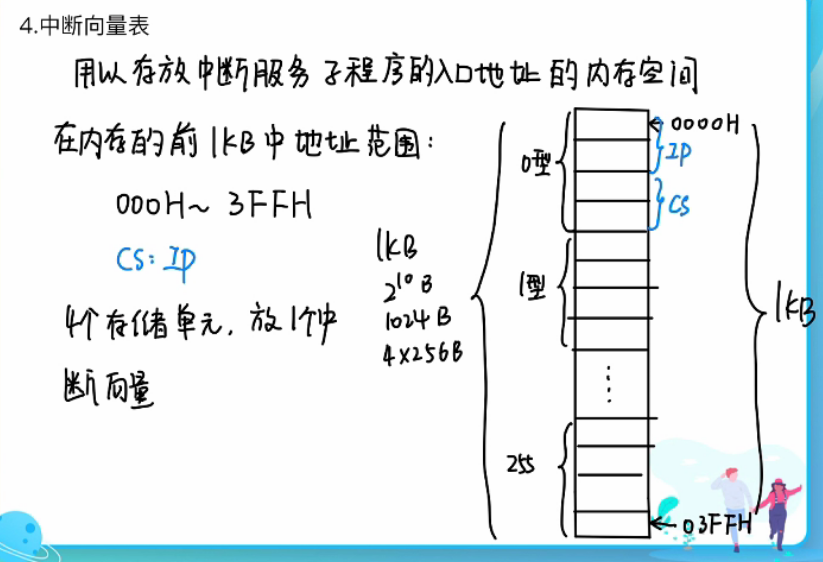 4.中断向量表
用以存放中断服务子程序的入口地址的内存空间
在内存的前1KB中地址范围：
000H~ 3FFH
CS: IP
4个存储单元, 放1个中
断向量
1KB
2¹⁰B
1024B
4×256B
0型
1型
255
0000H
IP
CS
03FFH
1KB